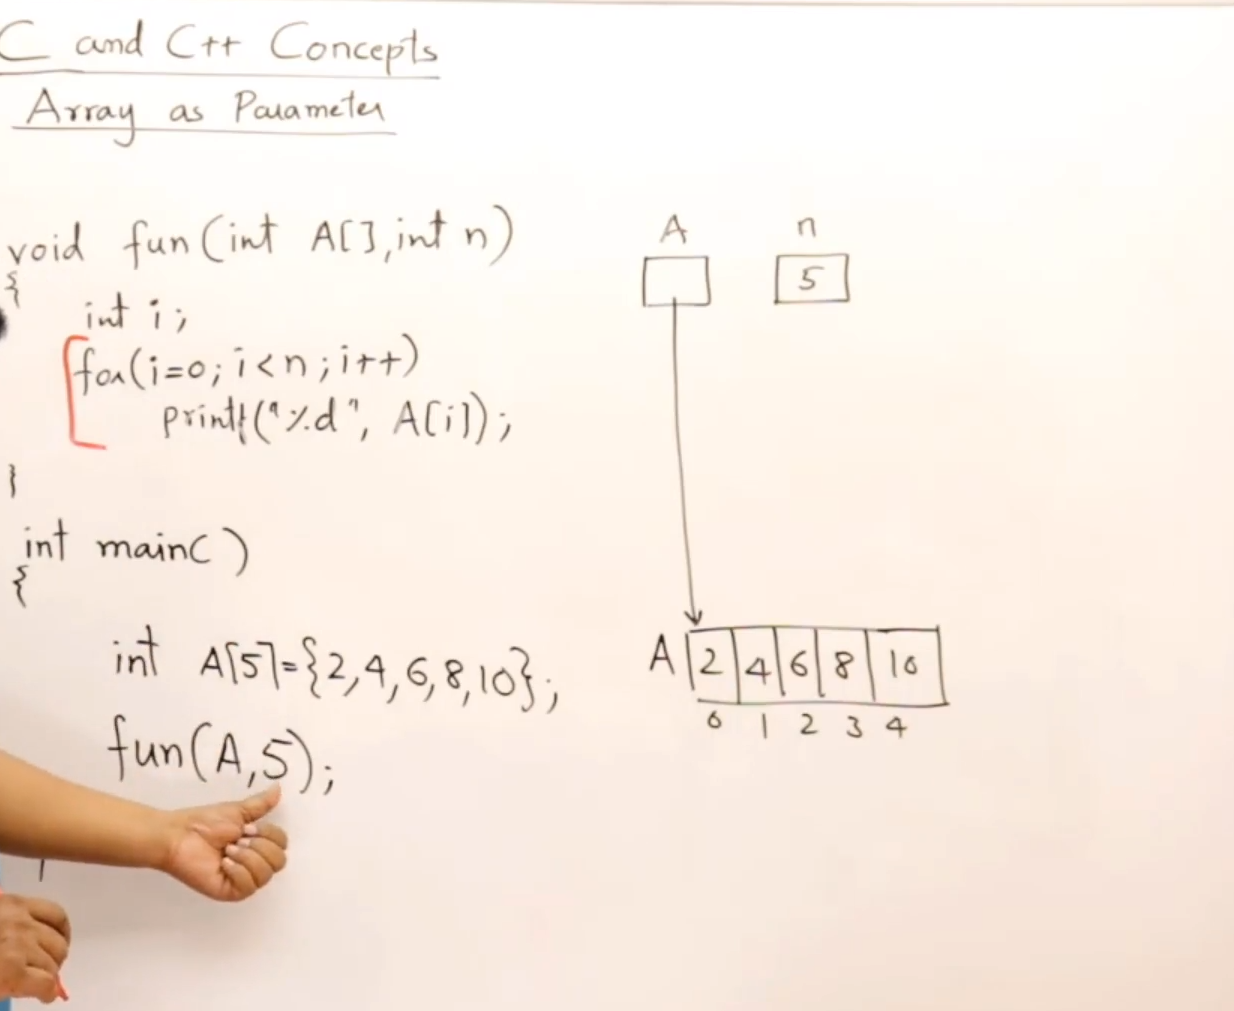 C and C++ Concepts
Array as Parameter
void fun(int A[], int n)
{
int i;
for(i=0; i<n; i++)
printf("%d", A[i]);
}
int main()
{
int A[5]={2,4,6,8,10};
fun(A,5);
A n
5
A 2 4 6 8 10
0 1 2 3 4